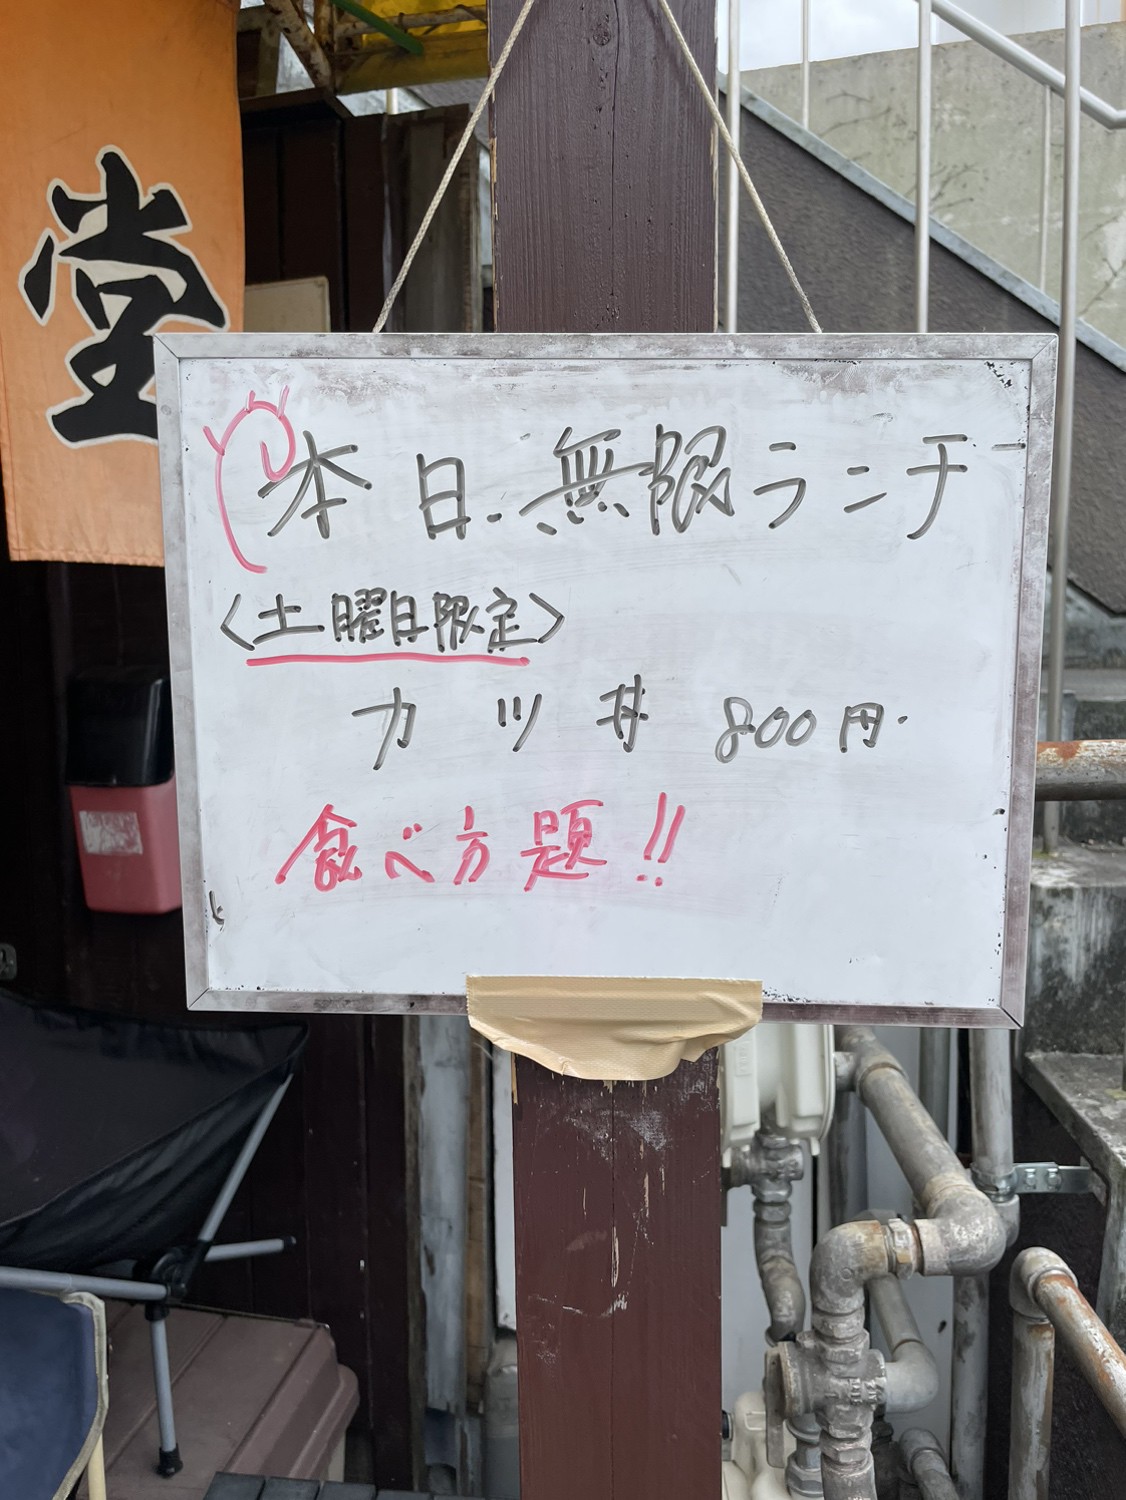 堂
本日.無限ランチ
〈土曜日限定〉
カツ丼 800円.
食べ方題!!